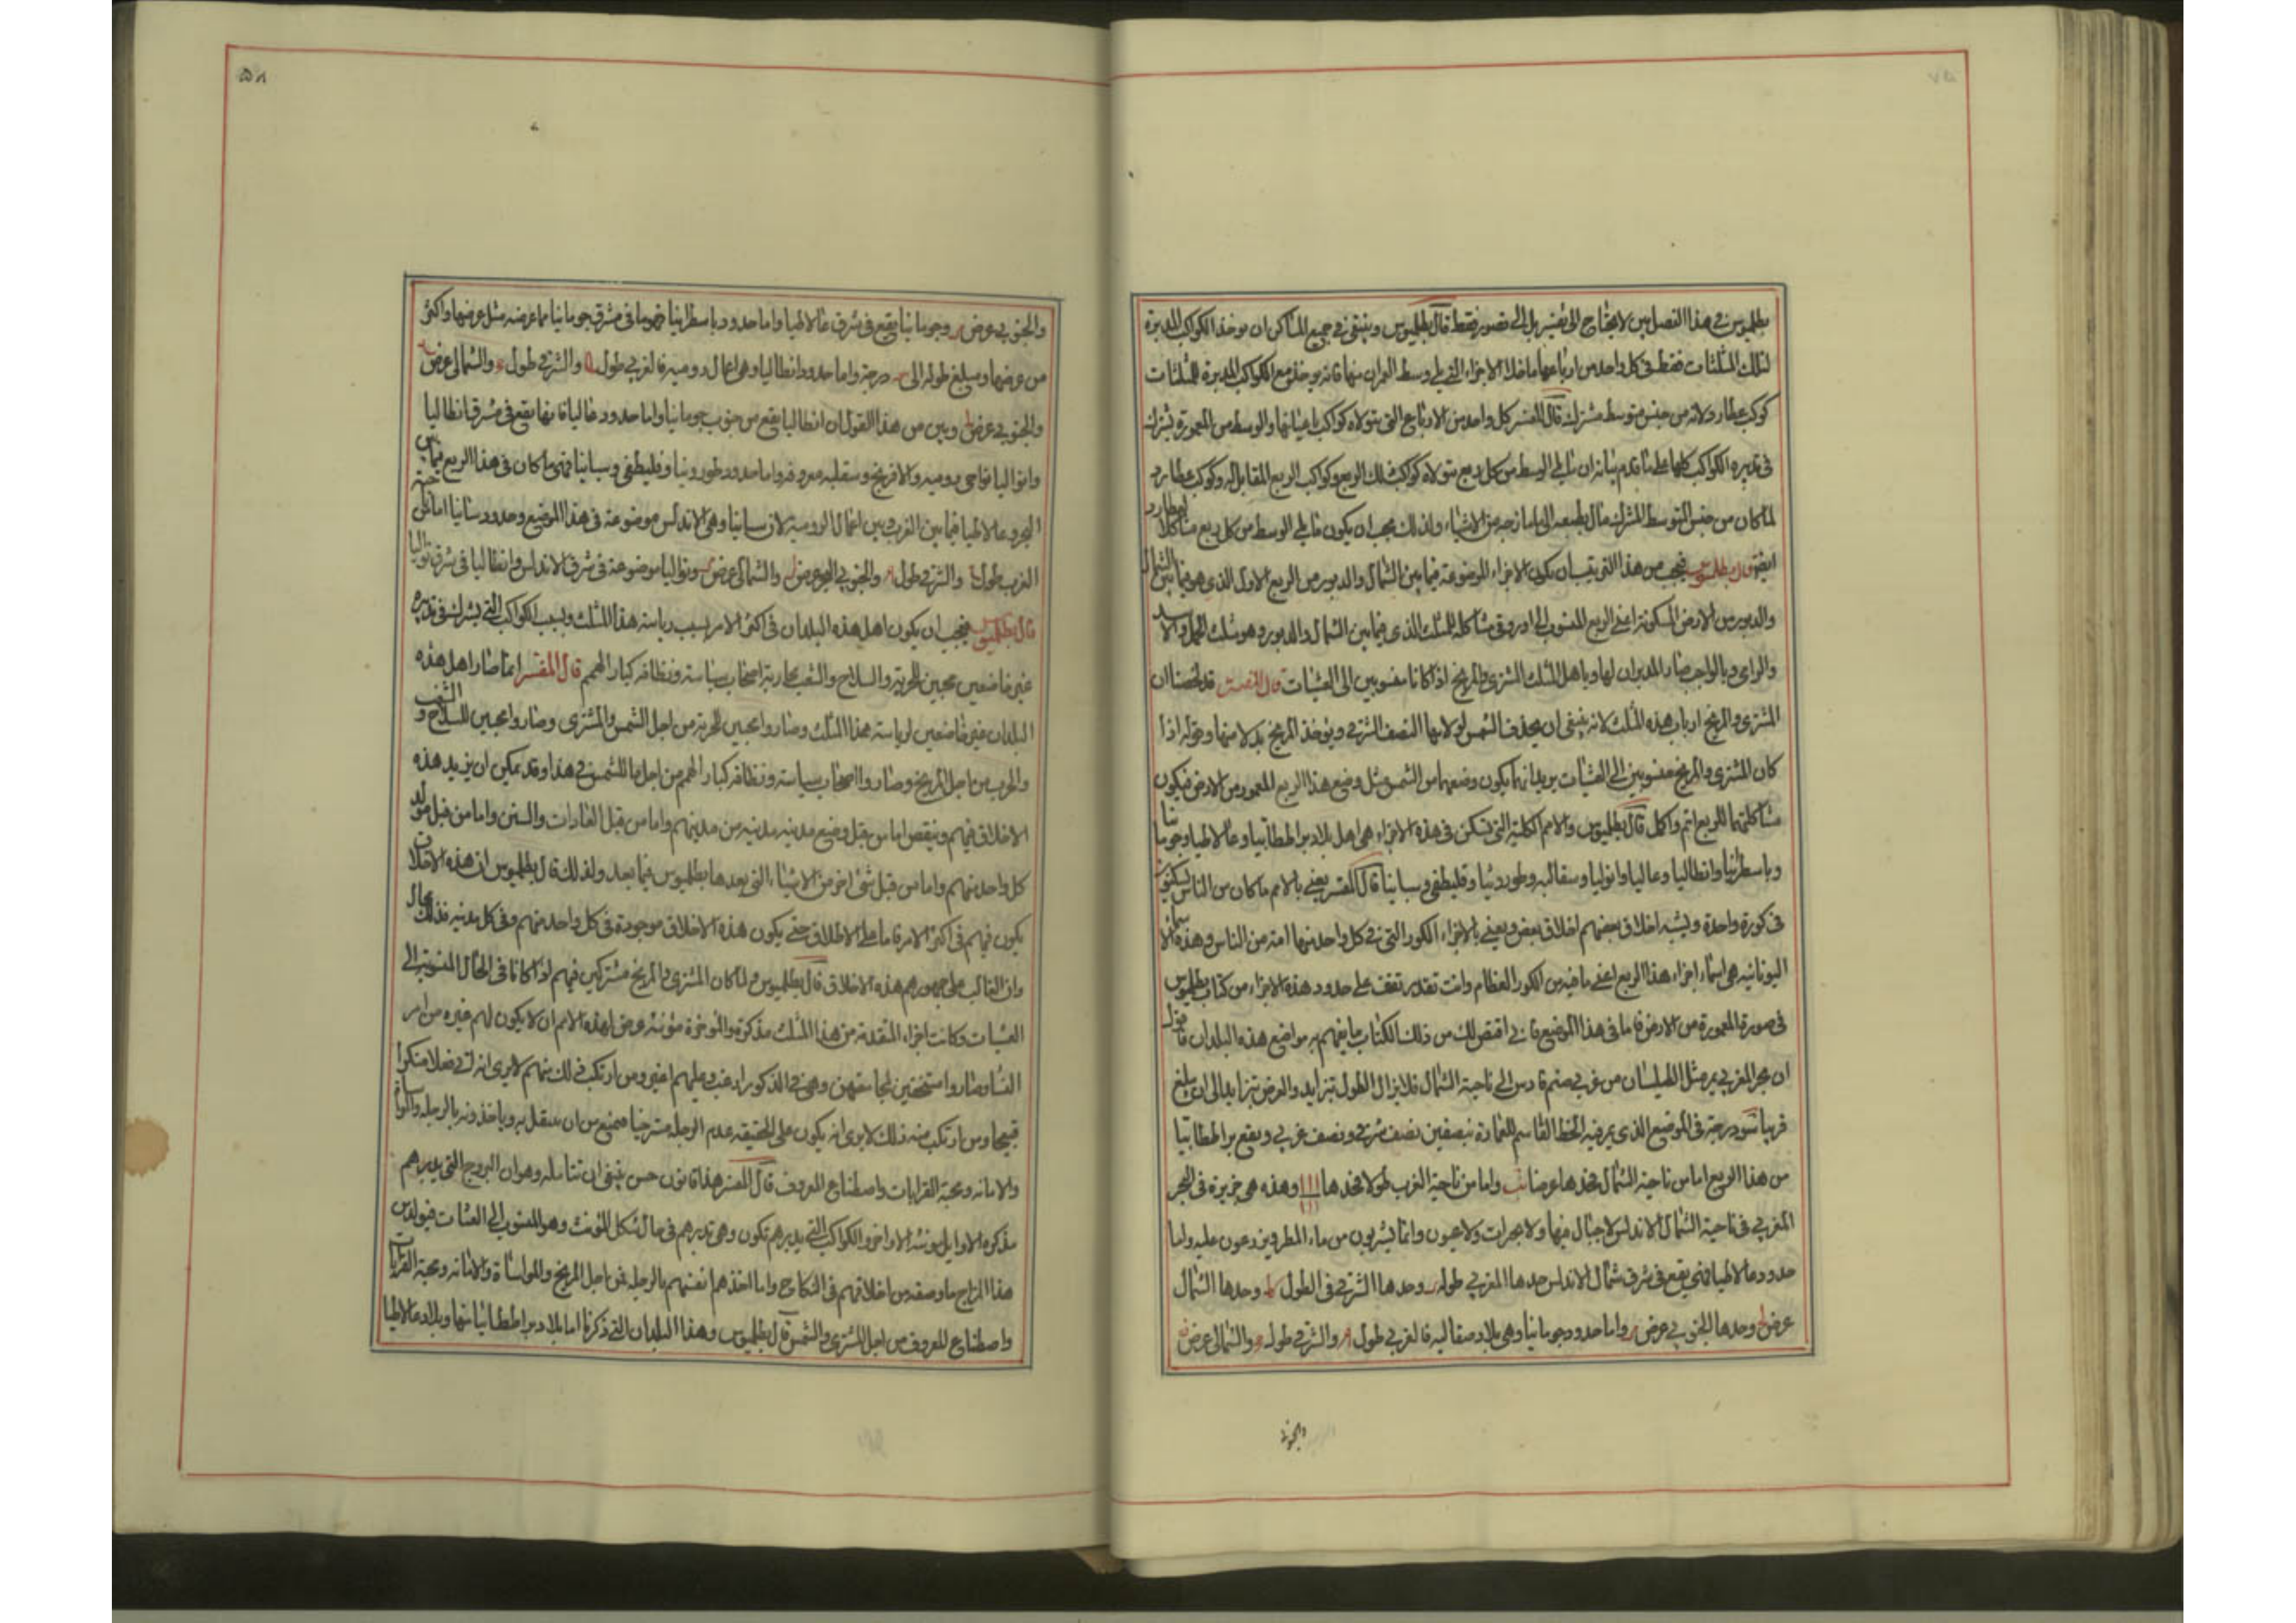 ٥٧
بطلميوس في هذا الفصل بين لا يحتاج الى تفسير بل الى تصور فقط قال بطلميوس وينبغي في جميع المساكن ان يوخذ الكواكب المدبرة
لتلك المثلثات فقط في كل واحد من ارباعها ما خلا الاجزاء التي يلي وسط العمران منها فانه يوخذ مع الكواكب المدبرة للمثلثات
كوكب عطارد لانه من جنس متوسط مشترك قال المفسر كل واحد من الارباع التي يتولاه كواكب باعيانها والوسط من المعمورة يشترك
في تدبيره الكواكب كلها على ما تقدم بيانه ان ما يلي الوسط من كل ربع يتولاه كواكب ذلك الربع وكواكب الربع المقابل له وكوكب عطارد
لما كان من جنس المتوسط المشترك مال بطبعه الى ما مازجه من الاشياء ولذلك يجب ان يكون ما يلي الوسط من كل ربع مشاكلا لعطارد
ايضا قال بطلميوس فيجب من هذا التي تبين ان يكون الاجزاء الموضوعة فيما بين الشمال والدبور من الربع الاول الذي هو فيما بين الشمال
والدبور من الارض المسكونة اعني الربع المنسوب الى اوروفى مشاكلة للمثلث الذي فيما بين الشمال والدبور وهو مثلث الحمل والاسد
والرامي وبالواجب صار المدبران لها وباهل المثلث المشتري والمريخ اذا كانا منسوبين الى العشيات قال المفسر قد لخصنا ان
المشتري والمريخ ارباب هذه المثلث لانه ينبغي ان يحذف الشمس لولايتها النصف الشرقي ويوخذ المريخ بدلا منها وقوله اذا
كان المشتري والمريخ منسوبين الى العشيات يريد انهما يكون وضعهما من الشمس مثل وضع هذا الربع المعمور من الارض فيكون
مشاكلتهما للربع اتم واكمل قال بطلميوس والامم الكلية التي تسكن في هذه الاجزاء هي اهل بلاد براطانيا وغالاطيا وجومانيا
وباسطرنيا وانطاليا وغاليا وابوليا وسقاليه وطوردنيا وقليطقي وسبانيا قال المفسر يعني بالامم ما كان من الناس يسكنون
في كورة واحدة ويشبه اخلاق بعضهم اخلاق بعض ويعني بالاجزاء الكور التي في كل واحد منها امة من الناس وهذه الاسماء
اليونانية هي اسماء اجزاء هذا الربع اعني ما فيه من الكور العظام وانت تقدر تقف على حدود هذه الاجزاء من كتاب بطلميوس
في صورة المعمورة من الارض فاما في هذا الموضع فاني اقتص لك من ذلك الكتاب ما يفهم به مواضع هذه البلدان فاقول
ان بحر المغربي يمر مثل الطيلسان من غربي صنم قادس الى ناحية الشمال فلا يزال الطول تتزايد والعرض تتزايد الى ان يبلغ
قريبا من درجة في الموضع الذي يمر فيه الخط القاسم للعمارة بنصفين نصف شرقي ونصف غربي ويقع براطانيا
من هذا الربع اما من ناحية الشمال فحدها عرضا واما من ناحية الغرب طولا فحدها وهذه هي جزيرة في البحر
المغربي في ناحية الشمال الاندلس لا جبال فيها ولا بحرات ولا عيون وانما يشربون من ماء المطر ويزرعون عليه واما
حدود غالاطيا فهي يقع في شرق شمال الاندلس حدها المغربي طوله وحدها الشرقي في الطول وحدها الشمال
عرض وحدها الجنوبي عرض واما حدود جومانيا وهي بلاد صقالبه فالغربي طول والشرقي طول والشمالي عرض
والجنوبي
٥٨
والجنوبي عرض وجومانيا يقع في شرق غالاطيا واما حدود باسطرانيا فهو ما في مشرق جومانيا مما عرضه مثل عرضها واكثر
من عرضها ومبلغ طوله الى درجة واما حدود انطاليا وهي اعمال روميه فالغربي طول والشرقي طول والشمالي عرض
والجنوبي عرض وبين من هذا القول ان انطاليا يقع من جنوب جومانيا واما حدود غاليا فانها يقع في شرق انطاليا
وابواليا نواحي روميه والافرنج وسقليه معروفه واما حدود طوردنيا وقليطقي وسبانيا فهي ما كان في هذا الربع
البحر وغالاطيا فيما بين الغرب وبين اعمال الرومية لان سبانيا وهي الاندلس موضوعة في هذا الموضع وحدود سبانيا اما من
الغرب طول والشرقي طول والجنوبي عرض والشمالي عرض وابواليا موضوعة في شرق الاندلس وانطاليا في شرق ابواليا
قال بطلميوس فيجب ان يكون اهل هذه البلدان في اكثر الامر بسبب رياسة هذا المثلث وبسبب الكواكب التي يشترك في تدبيره
غير خاضعين محبين للحرية والسلاح والتعب محاربة اصحاب سياسة ونظافه كبار الهمم قال المفسر انما صار اهل هذه
البلدان غير خاضعين لرياسة هذا المثلث وصاروا محبين للحرية من اجل الشمس والمشتري وصاروا محبين للسلاح والتعب
والحرب من اجل المريخ وصاروا اصحاب سياسة ونظافه كبار الهمم من اجل ما للشمس في هذا وقد يمكن ان يزيد هذه
الاخلاق فيهم وينقص اما من قبل وضع مدينه مدينه من مدينهم واما من قبل العادات والسنن واما من قبل مولد
كل واحد منهم واما من قبل شي اخر من الاشياء التي يعدها بطلميوس فيما بعد ولذلك قال بطلميوس ان هذه الاخلاق
يكون فيهم في اكثر الامر فاما على الاطلاق حتى يكون هذه الاخلاق موجودة في كل واحد منهم وفي كل مدينه فذلك محال
وان الغالب على جمهورهم هذه الاخلاق قال بطلميوس ولما كان المشتري والمريخ مشتركين فيهم اذا كانا في الحال المنسوبة الى
العشيات وكانت اجزاء المتقدمة من هذا المثلث مذكرة والموخرة مؤنثه عرض لهذه الامم ان لا يكون لهم غيره من امر
النسا وصاروا مستخفين لمجامعتهن وهي في الذكور ارغب وعليهم اغير ومن ارتكب ذلك منهم لا يرى انه اتى فعلا منكرا
قبيحا ومن ارتكب منه ذلك لا يرى انه يكون على الحقيقه عدم الرجله مسترخيا فيمنع من ان ينفعل به وياخذونه بالرجله والمواساة
والامانه ومحبة القرابات واصطناع المعروف قال المفسر هذا قانون حسن ينبغي ان نتامله وهو ان البروج التي يدبرهم
مذكره الاوايل مونثه الاواخر والكواكب التي يدبرهم تكون وهي تدبرهم في حال شكل المونث وهو المنسوب الى العشيات فيولد من
هذا المزاج ما وصفه من اخلاقهم في النكاح واما اخذهم انفسهم بالرجله فمن اجل المريخ والمواساة والامانه ومحبة القرابات
واصطناع المعروف من اجل المشتري والشمس قال بطلميوس وهذا البلدان التي ذكرنا اما بلاد براطانيا منها وبلاد غالاطيا